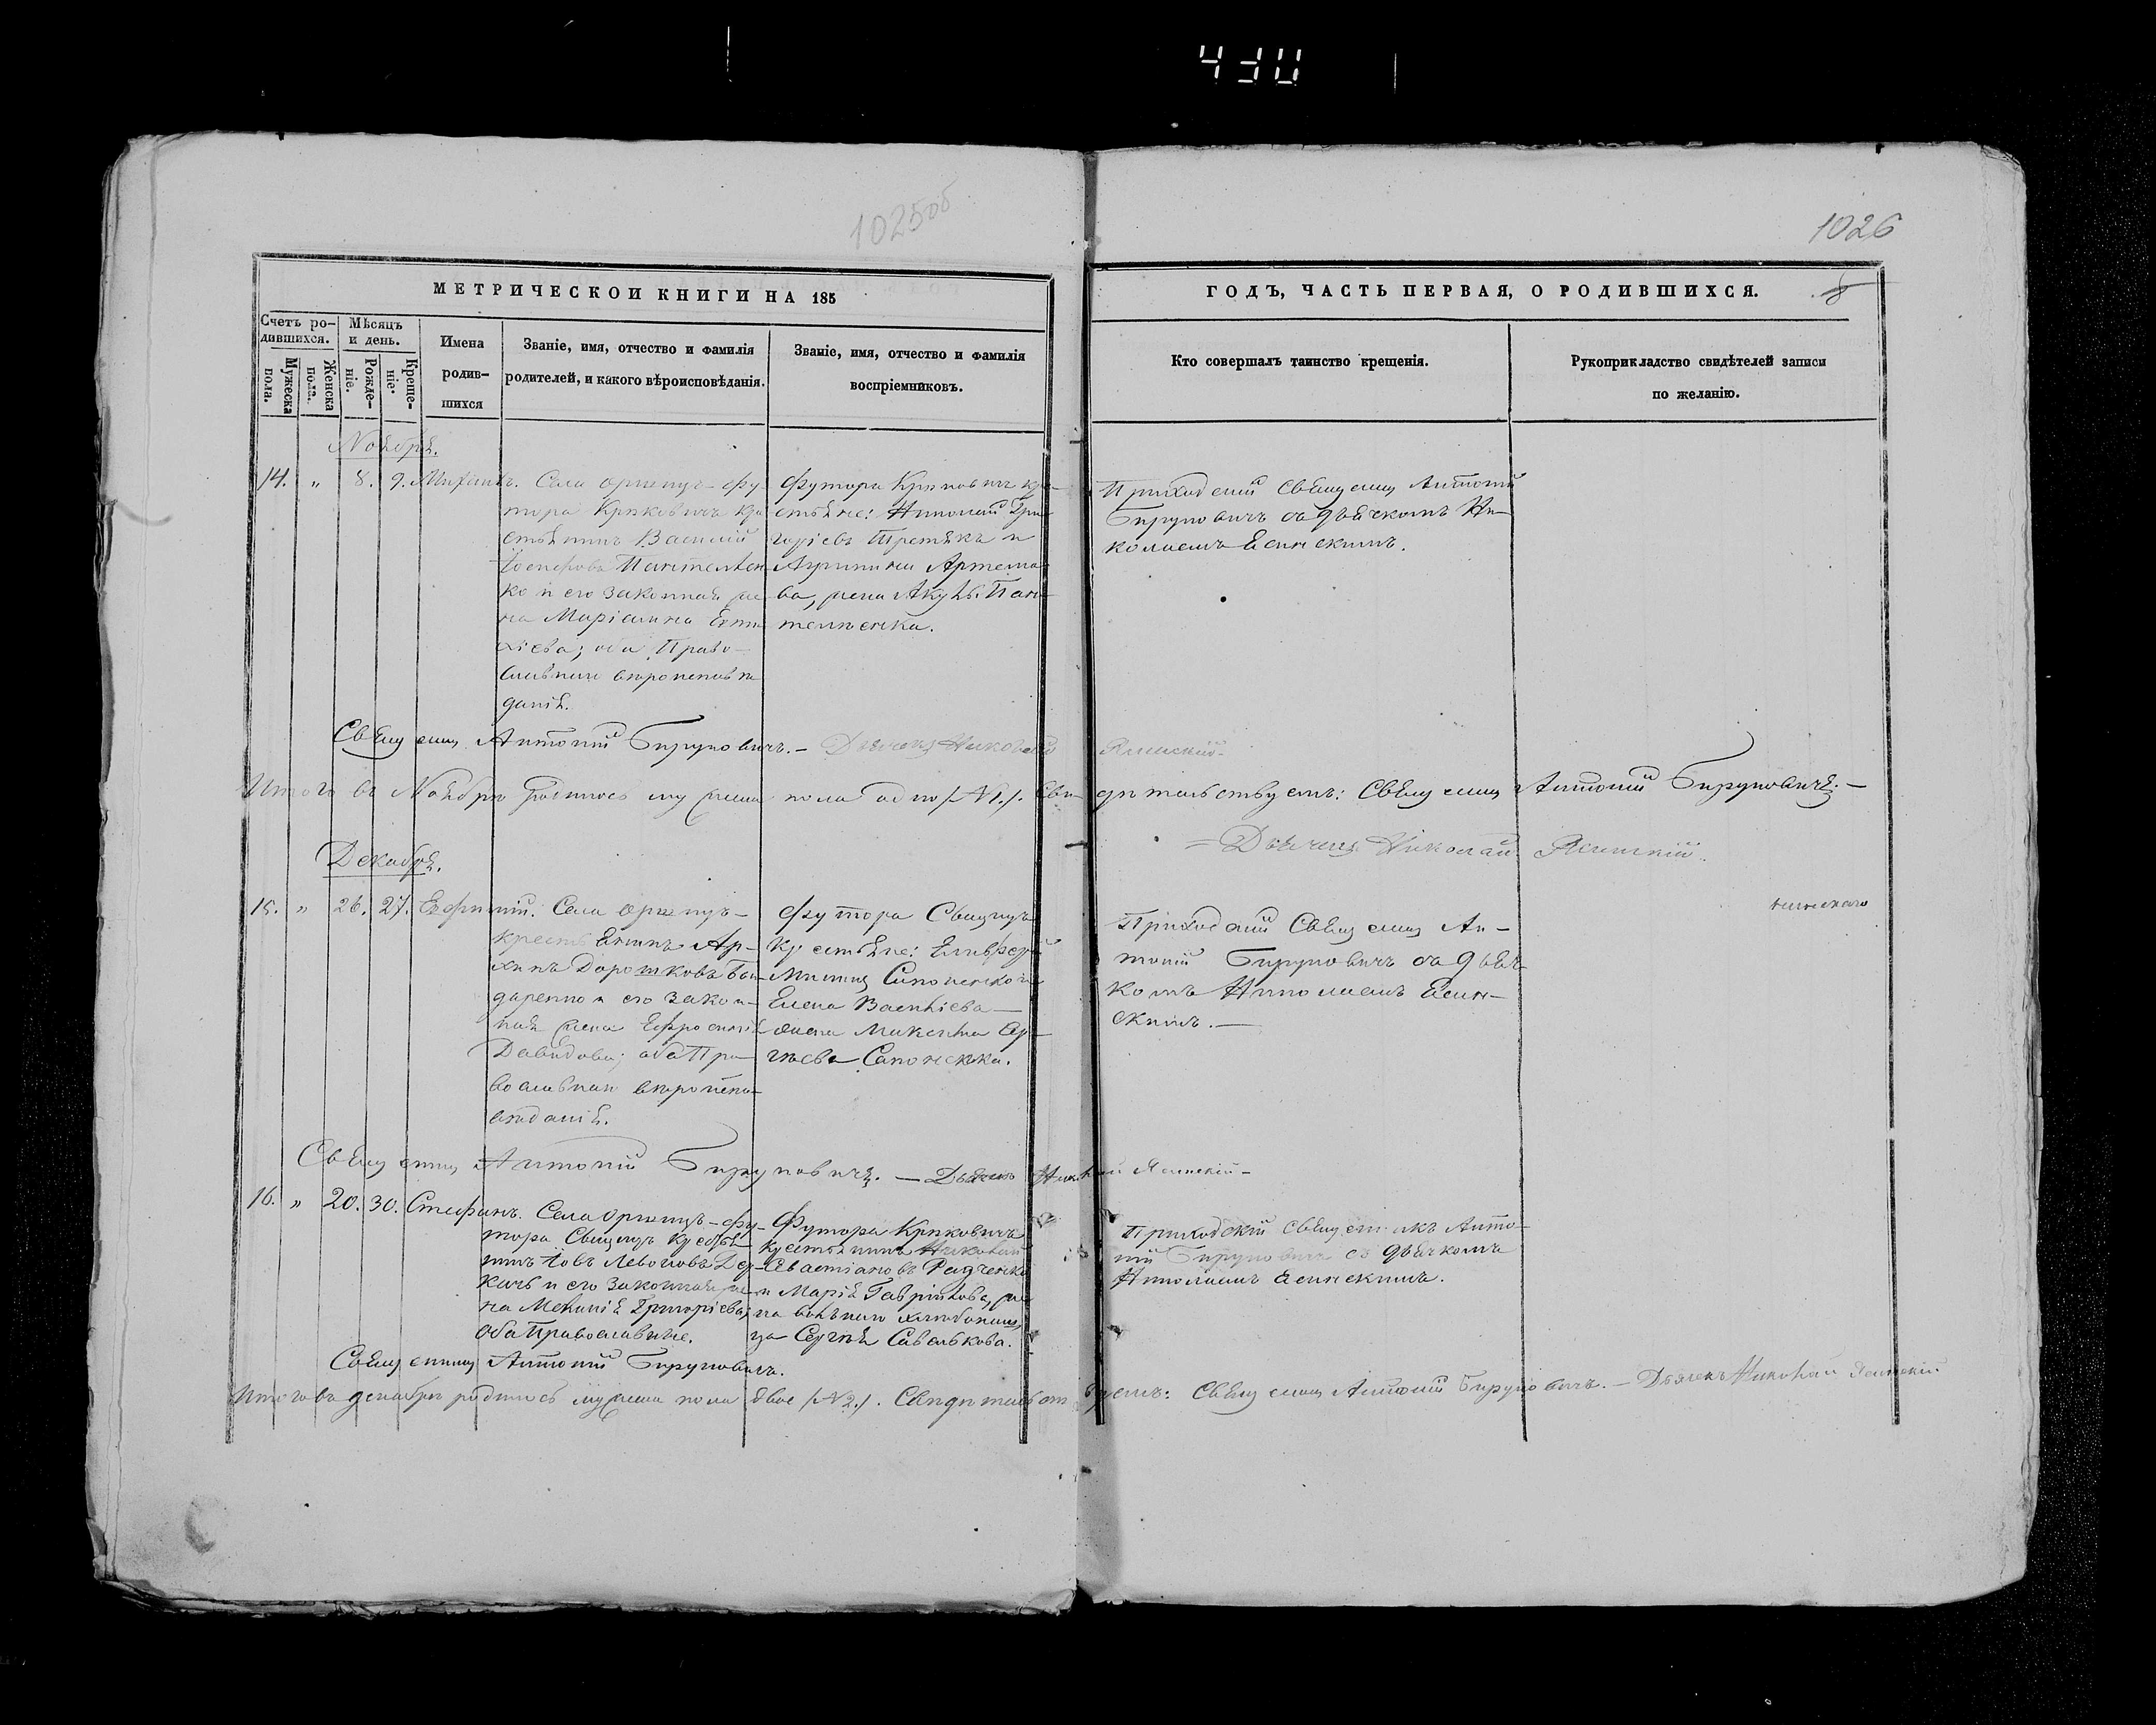 430
1025об
1026
МЕТРИЧЕСКОЙ КНИГИ НА 185
ГОДЪ, ЧАСТЬ ПЕРВАЯ, О РОДИВШИХСЯ.
Счетъ ро-
дившихся.
Мѣсяцъ
и день.
Мужеска
пола.
Женска
пола.
Рожде-
ніе.
Креще-
ніе.
Имена
родив-
шихся
Званіе, имя, отчество и фамилія
родителей, и какого вѣроисповѣданія.
Званіе, имя, отчество и фамилія
воспріемниковъ.
Кто совершалъ таинство крещенія.
Рукоприкладство свидѣтелей записи
по желанію.
Ноября.
14. " 8. 9. Михаилъ.
Села Оржицъ - фу-
тора Крюковичъ кре-
стьянинъ Василій
Іосифовъ Пантелѣен-
ко и его законная же-
на Маріанна
оба Право-
славнаго вѣроисповѣ-
данія.
футора Крюковичъ кре-
стьяне: Николай Гри-
горіевъ Третякъ и
Агрипина Артемо-
ва, жена Пан-
телѣенка.
Приходскій Священникъ Антоній
съ дьячкомъ Ни-
колаемъ Ясинскимъ.
Священникъ Антоній
Дьячекъ Николай Ясинскій
Итого въ Ноябрѣ родилось мужеска пола одно /№1./. Сви-
дѣтельствуемъ: Священникъ Антоній
Дьячекъ Николай Ясинскій.
Декабря.
15. " 26. 27.
Села Оржицъ -
крестьянинъ Ар-
хипъ Дорошковъ Бон-
даренко и его закон-
ная жена Ефросинія
Давидова; оба Пра-
вославнаго вѣроиспо-
вѣданія.
футора Свищухъ
крестьяне:
Сапоненко и
Елена Васильева
жена Микиты Сер-
гѣева Сапоненка.
Приходскій Священникъ Ан-
тоній съ дьяч-
комъ Николаемъ Ясин-
скимъ.
Священникъ Антоній
Дьячекъ Николай Ясинскій
16. " 20. 30. Стефанъ.
Села Оржицъ - фу-
тора Свищухъ крестья-
нинъ Іовъ Левоновъ Дер-
качъ и его законная же-
на Меланія Григоріева;
оба Православные.
Футора Крюковичъ
крестьянинъ Николай
Севастіановъ Радченко
и Марія Гавріилова, же-
на вольнаго хлѣбопаш-
ца Сергѣя Савелькова.
Приходскій священникъ Анто-
ній съ дьячкомъ
Николаемъ Ясинскимъ.
Священникъ Антоній
Итого въ декабрѣ родилось мужеска пола двое /№2./. Свидѣтельствуемъ: Священникъ Антоній
Дьячекъ Николай Ясинскій